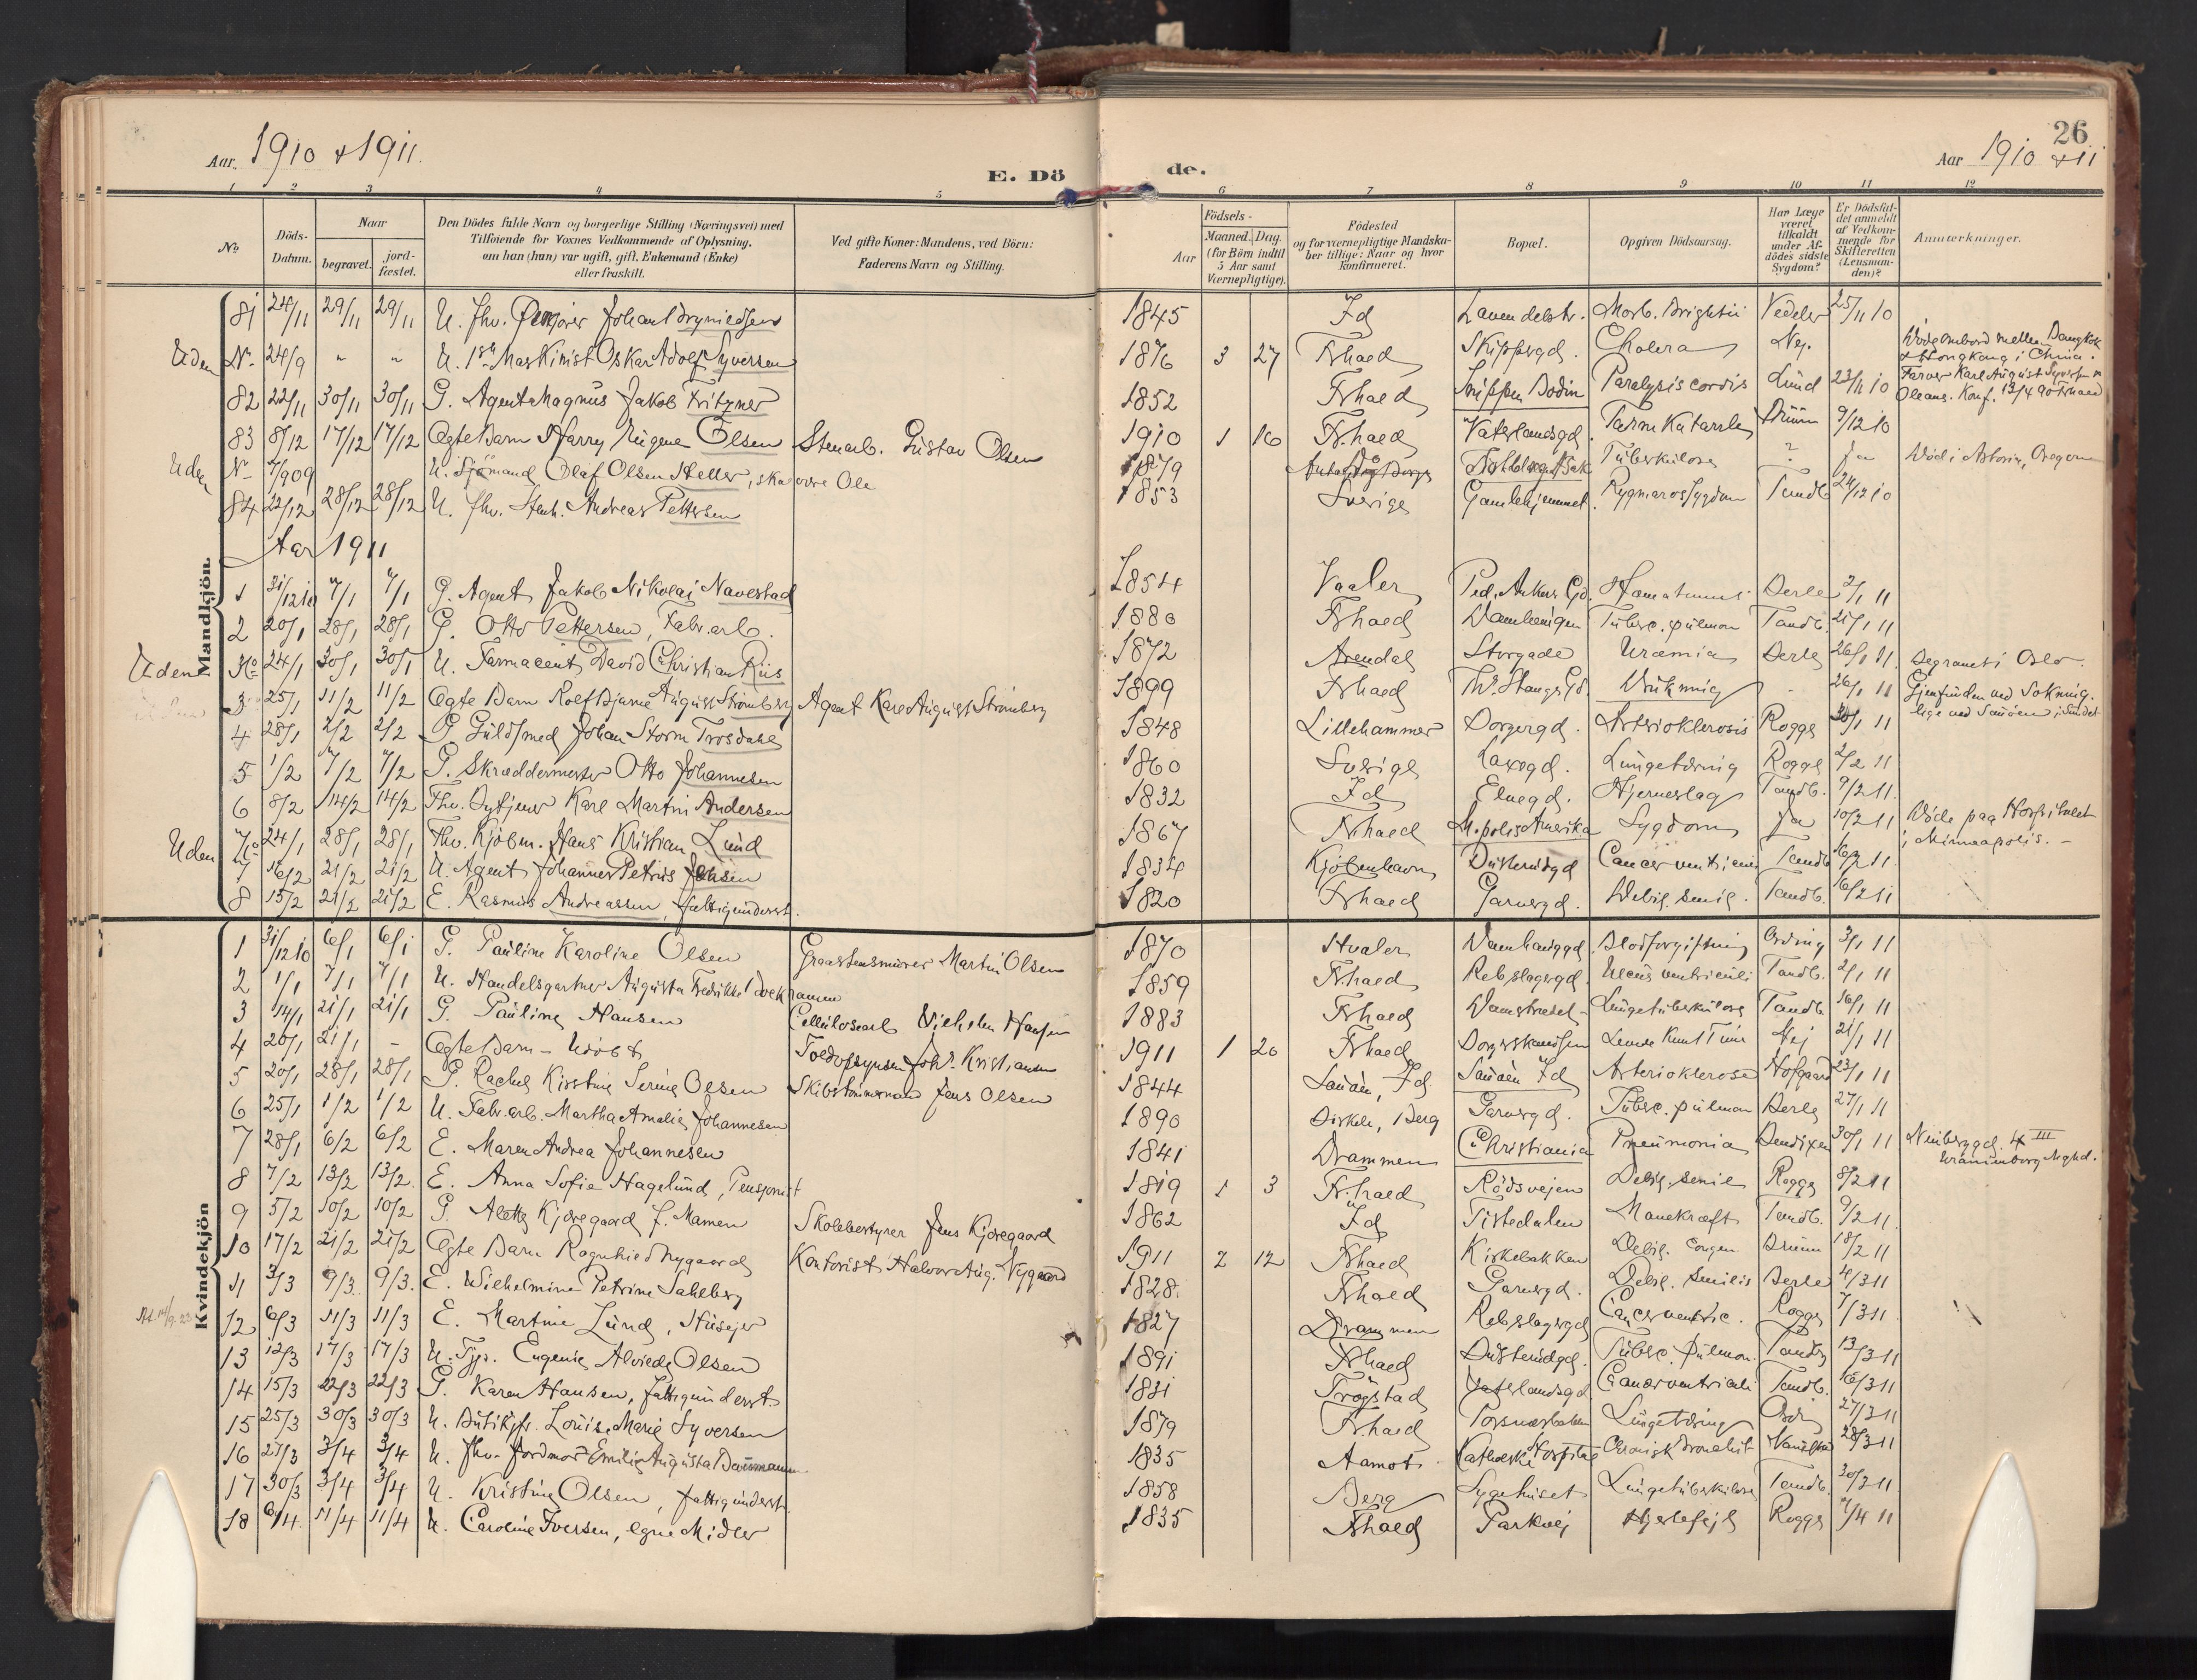 Aar 1910 & 1911.
E. Dö
de.
Aar 1910 & 11
26
1 2 3 4 5 6 7 8 9 10 11 12
No
Döds-Datum.
Naar
begravet. jord-fæstet.
Den Dödes fulde Navn og borgerlige Stilling (Næringsvei) med
Tilföiende for Voxnes Vedkommende af Oplysning,
om han (hun) var ugift, gift, Enkemand (Enke)
eller fraskilt.
Ved gifte Koner: Mandens, ved Börn:
Faderens Navn og Stilling.
Födsels-
Aar
Maaned. Dag.
(for Börn indtil
5 Aar samt
Værnepligtige).
Födested
og for værnepligtige Mandska-
ber tillige: Naar og hvor
konfirmeret.
Bopæl.
Opgiven Dödsaarsag.
Har Læge
været
tilkaldt
under Af-
dödes sidste
Sygdom?
Er Dödsfal-
det anmeldt
af Vedkom-
mende for
Skifteretten
(Lensman-
den)?
Anmærkninger.
Mandkjön.
81 24/11 29/11 29/11 U. fhv. Johan Brynildsen 1845 Id Lavendelstr. Morb. Brightii Vedeler 25/11 10
Uden No 24/9 " " U. 1ste Maskinist Oskar Adolf Syversen 1876 3 27 Frhald Skippergd. Cholera Nej. Döde ombord mellem Bangkok & Hongkong i China. Farver Karl August Syversen Konf. 13/4 90 Frhald
82 22/11 30/11 30/11 G. Agent Magnus Jakob Fritzner 1852 Frhald Bödin Paralysis cordis Lund 23/11 10
83 8/12 17/12 17/12 Ægte Barn Harry Eugene Olsen Stenarb. Gustav Olsen 1910 1 16 Fr.hald Vaterlandsgd. Tarmkatarrh 9/12 10
Uden No U. Sjömand Olaf Olsen Heller, skal være Ole 1879 Tuberkulose ? Ja Död i Astoria, Oregon
84 22/12 28/12 28/12 U. fhv. Stenh. Andreas Pettersen 1853 Sverige Gamlehjemmet. Rygmarvssygdom Tandb. 24/12 10
Aar 1911
1 31/12 10 7/1 7/1 G. Agent Jakob Nikolai Navestad 1854 Vaaler Ped. Ankers Gd. Berle 2/1 11
2 20/1 28/1 28/1 G. Otto Pettersen, Fabr.arb. 1880 Frhald Tuberc. pulmon Tandb. 21/1 11
Uden No 24/1 30/1 30/1 U. Farmaceut David Christian Riis 1872 Arendal Storgade Uræmia Berle 26/1 11. Begravet i Oslo.
3 25/1 11/2 11/2 Ægte Barn Rolf Bjarne August Strömberg Agent Karl August Strömberg 1899 Frhald Th. Stangs Gd. Drukning - 26/1 11 Gjenfunden ved Sokning.
4 28/1 2/2 2/2 G Guldsmed Johan Storm Trosdahl 1848 Lillehammer Borgergd. Arterioklerosis Rogge 30/1 11
5 1/2 7/2 7/2 G. Skræddermester Otto Johannesen 1860 Sverige Laxegd. Lungetæring Rogge 2/2 11
6 8/2 14/2 14/2 Fhv. Karl Martin Andersen 1832 Id Elvegd. Hjerneslag Tandb. 9/2 11.
Uden No 24/1 28/1 28/1 Fhv. Kjöbm. Hans Kristian Lund 1867 Fr.hald M.polis Amerika Sygdom Ja 10/2 11 Döde paa Hospitalet i Minneapolis. -
7 16/2 21/2 21/2 U. Agent Johannes Petrus Jensen 1834 Kjöbenhavn Cancer ventriculi Tandb. 16/2 11.
8 15/2 21/2 21/2 E. Rasmus Andreassen, fattigunderst. 1820 Frhald Garvergd. Debil. senil. Tandb. 16/2 11
Kvindekjön
1 31/12 10 6/1 6/1 G. Pauline Karoline Olsen Graastensmurer Martin Olsen 1870 Hvaler Blodforgiftning Ording 3/1 11
2 1/1 7/1 7/1 U. Handelsgartner Augusta Fredrikke 1859 Fr.hald Rebslagergd. Ulcus ventriculi Tandb. 2/1 11
3 14/1 21/1 21/1 G. Pauline Hansen Cellulosearb Vilhelm Hansen 1883 Frhald Damstrædet Lungetuberkulose Tandb. 16/1 11
4 20/1 21/1 - Ægte Barn - Udöbt Johs. Kristiansen 1911 1 20 Frhald Levede kun 1 Time Nej 21/1 11
5 20/1 28/1 28/1 G. Rachel Kirstine Serine Olsen Skibstömmermand Jens Olsen 1844 Sauöen, Id. Sauöen Id Arterioklerose Hofgaard 23/1 11
6 25/1 1/2 1/2 U. Fabr.arb. Martha Amalie Johannesen 1890 Berg Garvergd. Tuberc. pulmon Berle 27/1 11
7 28/1 6/2 6/2 E. Maren Andrea Johannesen 1841 Drammen Christiania Pneumonia Bendixen 30/1 11 Uranienborg Meghd.
8 7/2 13/2 13/2. E. Anna Sofie Hagelund, Pensjonist 1819 1 3 Fr.hald Rödsvejen Debil. senil Rogge 8/2 11
9 5/2 10/2 10/2 G. Alette Kjöregaard f. Mamen Skolebestyrer Jens Kjöregaard 1862 Id Tistedalen Manekræft Tandb. 9/2 11.
10 17/2 21/2 21/2 Ægte Barn Ragnhild Nygaard Kontorist Halvor Aug. Nygaard 1911 2 12 Frhald Kirkebakken Debil. congen 18/2 11
11 3/3 9/3 9/3. E. Wilhelmine Petrine Sahlberg 1828. Frhald Garvergd. Debil. senilis Berle 4/3 11
12 6/3 11/3 11/3 E. Martine Lund, Husejer 1827 Drammen Rebslagergd Cancer ventric. Rogge 7/3 11
13 12/3 17/3 17/3 U. Tjp. Eugenie Alvilde Olsen 1891 Frhald Tuberc. pulmon. Tandb 13/3 11
14 15/3 22/3 22/3 G. Karen Hansen, fattigunderst. 1831 Trögstad Vaterlandsgd Cancer ventriculi Tandb. 16/3 11
15 25/3 30/3 30/3 U. Butikjfr. Louise Marie Syversen 1879 Fr.hald Porsnæsbakken Lungetæring Ording 27/3 11
16 27/3 3/4 3/4 U. fhv. Jordmor Emilie Augusta 1835 Aamot Katholsk Hospital Chronisk Bronchit 28/3 11
17 30/3 3/4 3/4 U. Kristine Olsen, fattigunderst. 1858 Berg Sygehuset Lungetuberkulose Tandb. 30/3 11
18 6/4 11/4 11/4 U. Caroline Iversen, egne Midler 1835 Frhald Parkvej Hjertefejl Rogge 7/4 11